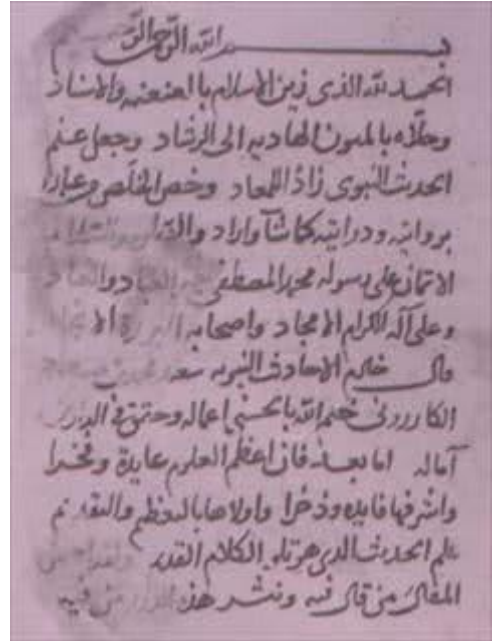 بسم الله الرحمن الرحيم
الحمد لله الذي زين الاسلام بالعنعنه والاسناد
وحلاه بالمتون الهاديه الى الرشاد وجعل علم
الحديث النبوى زادا للمعاد وخص الخلص من عباده
بروايته ودرايته كما شآ واراد والصلوة والسلام
الاتمان على رسوله محمد المصطفى
وعلى آله الكرام الامجاد واصحابه البررة الا
قال خادم الاحاديث النبويه سعد
الكازرونى ختم الله بالحسنى اعماله وحقق فى الدارين
آماله اما بعد فان اعظم العلوم عايدة وفخرا
واشرفها فايده وذخرا واولاها بالتعظيم والتقديم
علم الحديث الذى هو تلو الكلام القديم
المقال من قال فيه ونشر هذه الدرر من فيه